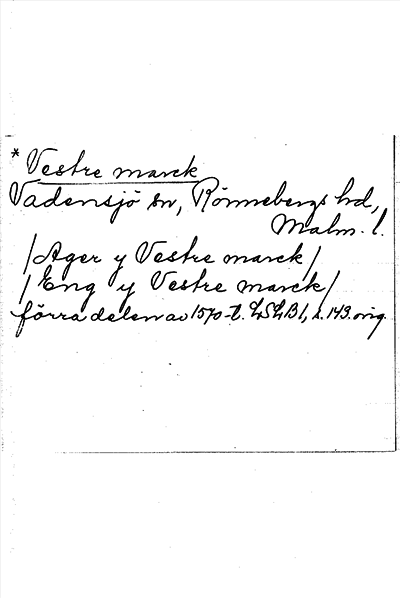 * Vestre marck
Vadensjö sn, Rönnebergs hd,
Malm. l.
/Ager y Vestre marck/
/Eng y Vestre marck/
förra delen av 1570-t. LSLB1, s. 143. orig.